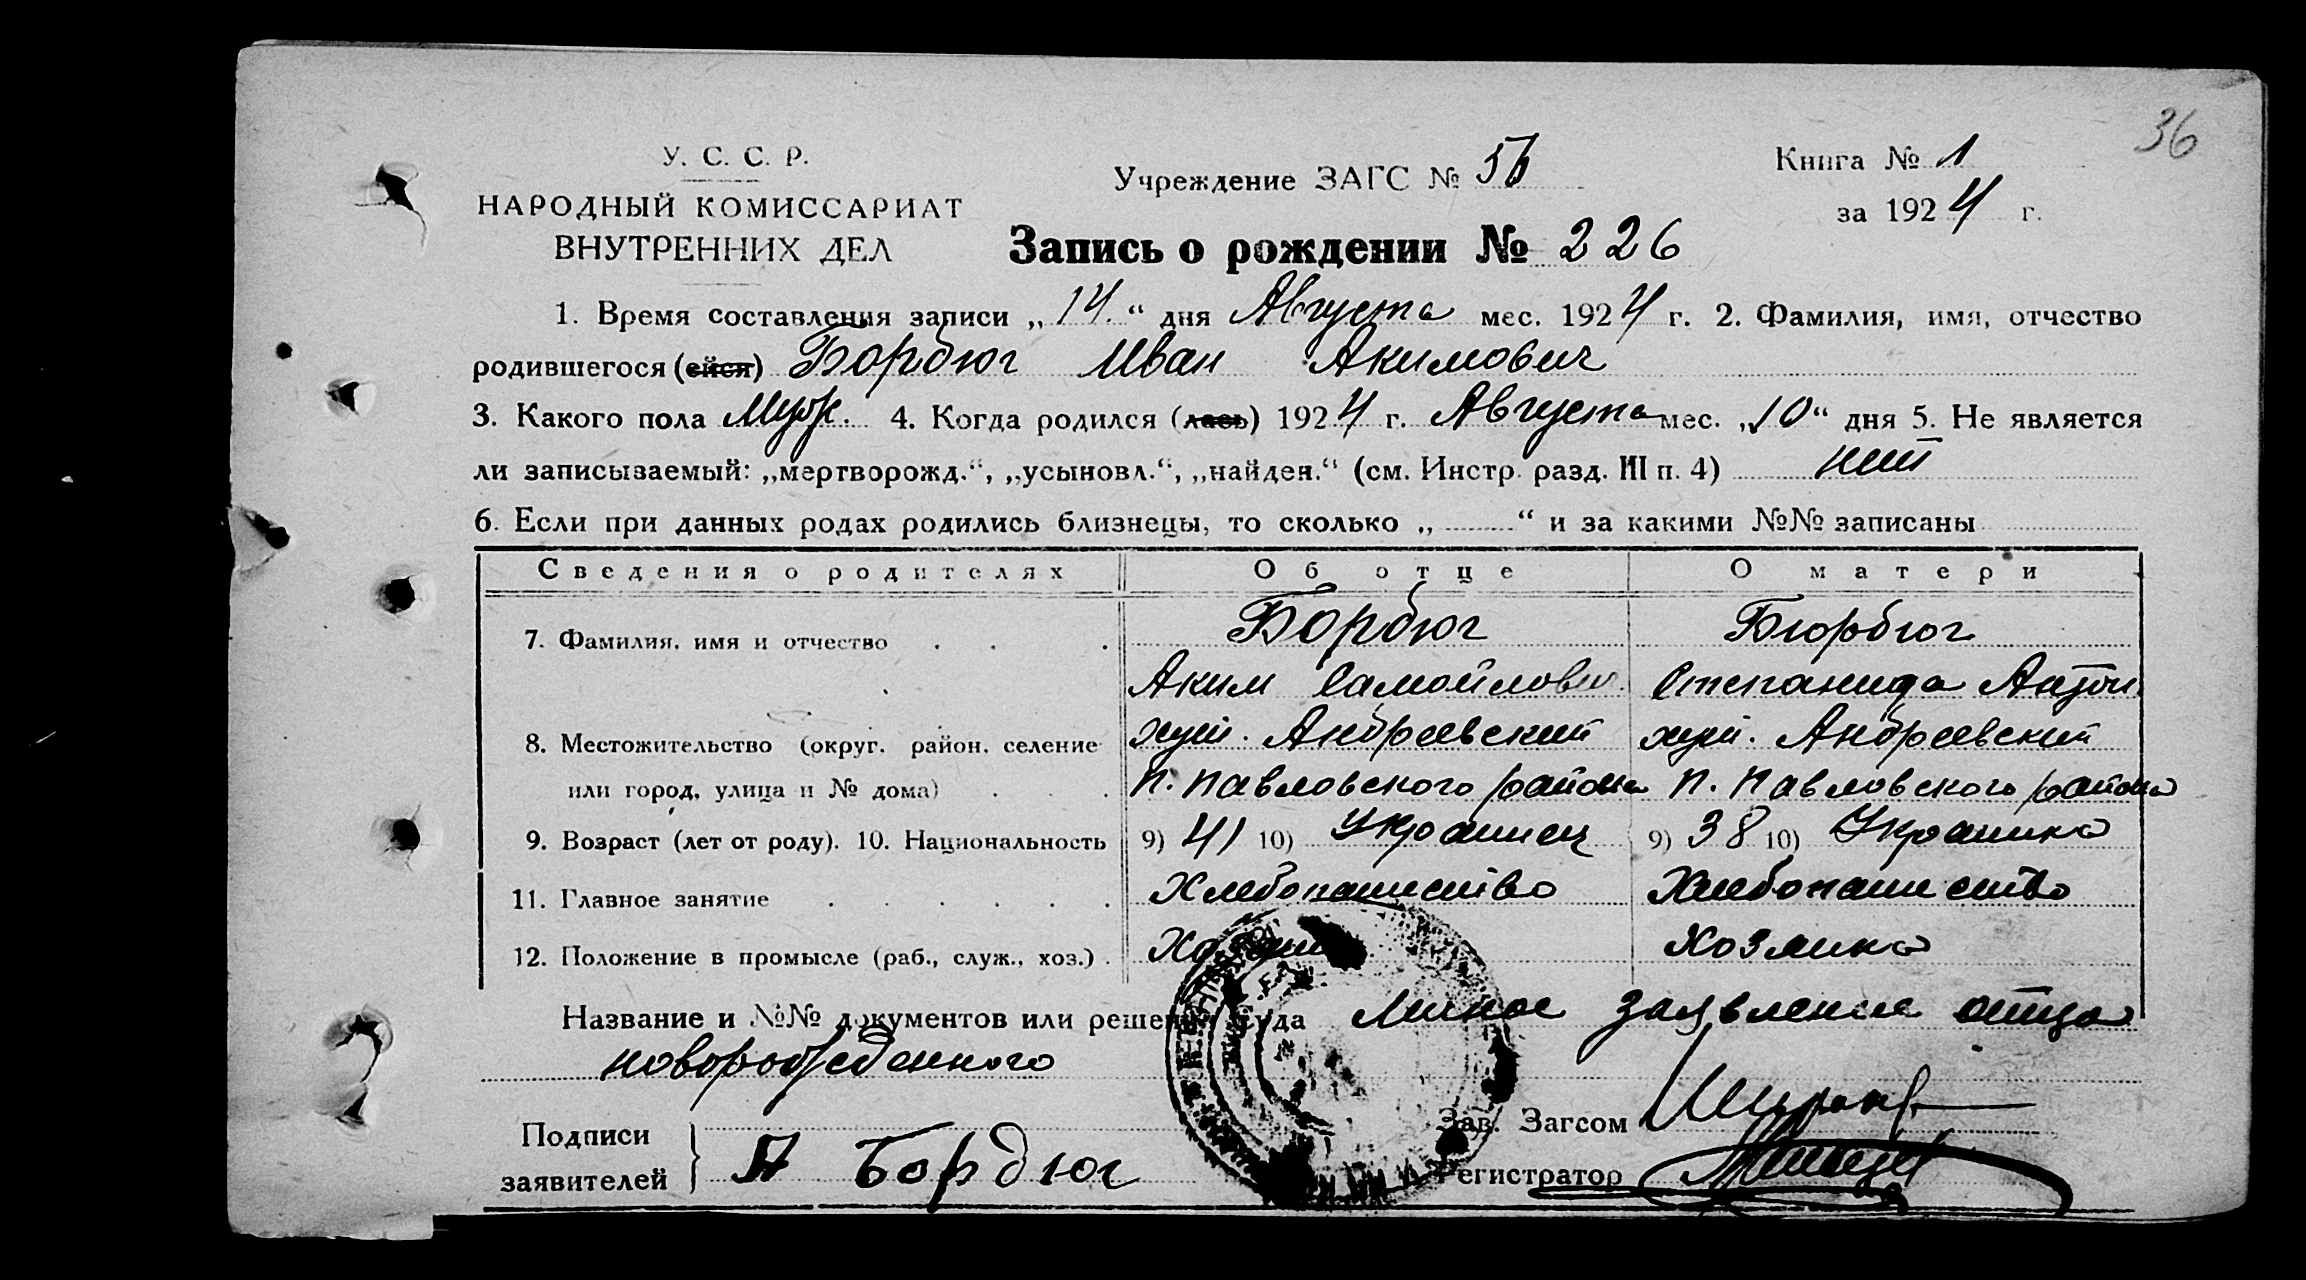 36
У. С. С. Р.
НАРОДНЫЙ КОМИССАРИАТ
ВНУТРЕННИХ ДЕЛ
Учреждение ЗАГС №
Книга № 1
за 1924 г.
Запись о рождении № 226
1. Время составления записи „14.“ дня Августа мес. 1924 г. 2. Фамилия, имя, отчество
родившегося (ейся) Бордюг Иван Акимович
3. Какого пола Муж. 4. Когда родился (лась) 1924 г. Августа мес. „10“ дня 5. Не является
ли записываемый: „мертворожд.“, „усыновл.“, „найден.“ (см. Инстр. разд. III п. 4) нет
6. Если при данных родах родились близнецы, то сколько „ “ и за какими №№ записаны
Сведения о родителях Об отце О матери
7. Фамилия, имя и отчество Бордюг Бюрдюг
Аким Самойлович Степанида Антон.
8. Местожительство (округ, район, селение хут. Андреевский хут. Андреевский
или город, улица и № дома) П. Павловского района П. Павловского района
9. Возраст (лет от роду). 10. Национальность 9) 41 10) Украинец 9) 38 10) Украинка
11. Главное занятие Хлебопашество Хлебопашество
12. Положение в промысле (раб., служ., хоз.) Хозяин Хозяйка
Название и №№ документов или решения суда Личное заявление отца
новорожденного
Подписи
заявителей А Бордюг
Зав. Загсом
Регистратор